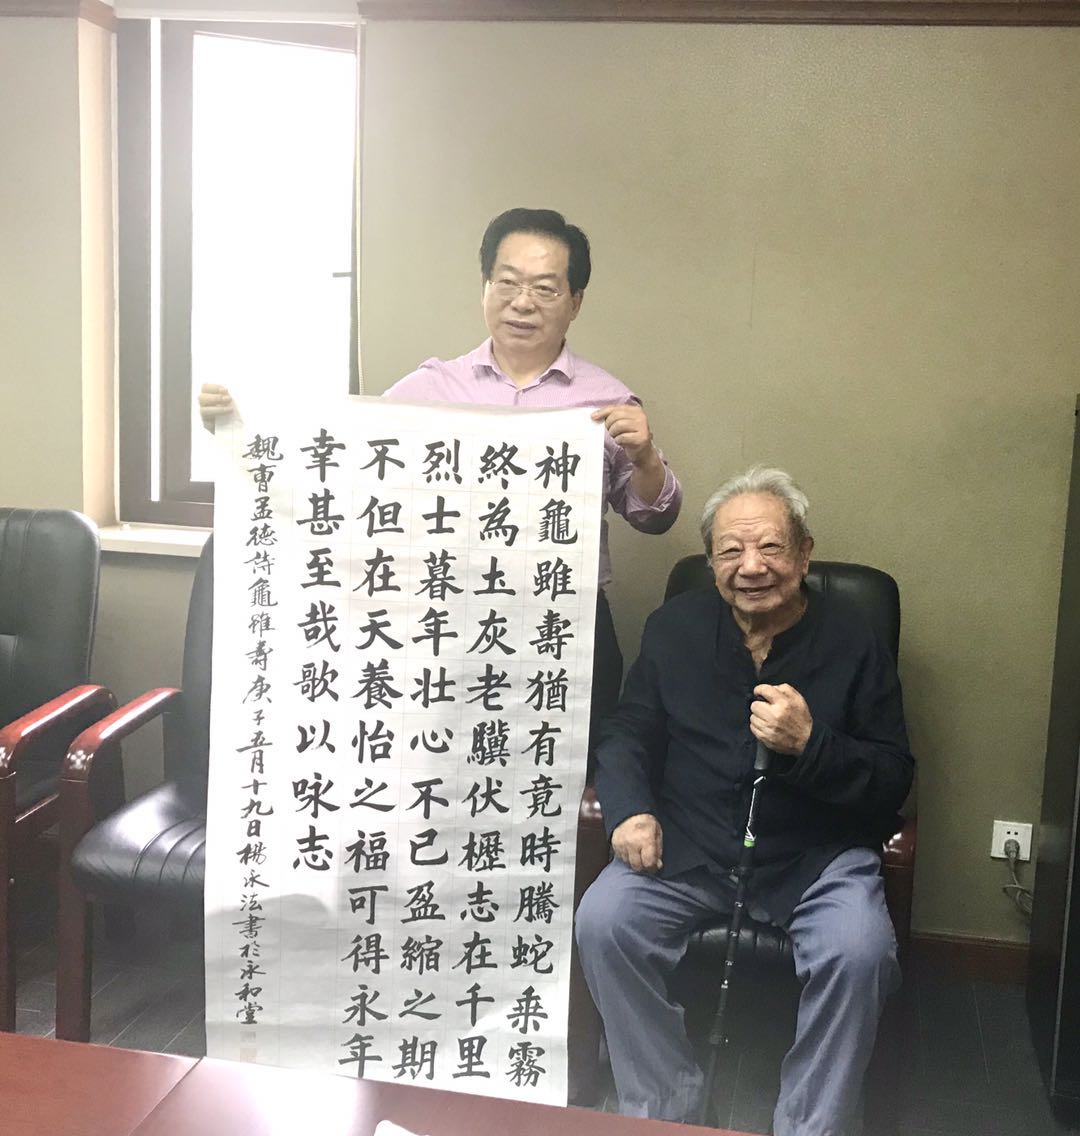 神龜雖壽猶有竟時騰蛇乗霧
終為土灰老驥伏櫪志在千里
烈士暮年壯心不已盈縮之期
不但在天養怡之福可得永年
幸甚至哉歌以咏志
魏曹孟德詩龜雖壽庚子五月十九日楊永法書於永和堂